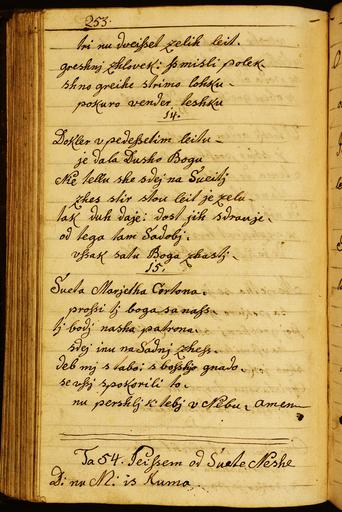 253.
tri nu dveisset zelih leit.
greshnj zhlovek: smisli polek
shno greihe strimo lohku.
pokuro vender teshku
14.
Dokler v pedessetim leitu
je dala Dusho Bogu
Nje tellu she sdej na Sveitj
zhes stir stou leit je zelu.
tak duh daje: dost jih sdravje.
od tega tam Sadobj.
vssak satu Boga zhastj.
15.
Sveta Marjetka Cortona.
prossi tj boga sa nass.
tj bodj nasha patrona.
sdej inu na Sadnj zhess.
deb mj s tabo: s bosshjo gnado.
se vsj spokorili to.
nu pershlj k tebj v Nebu. amen
Ta 54. Peissem od Svete Neshe
D: nu M: is Kuma.